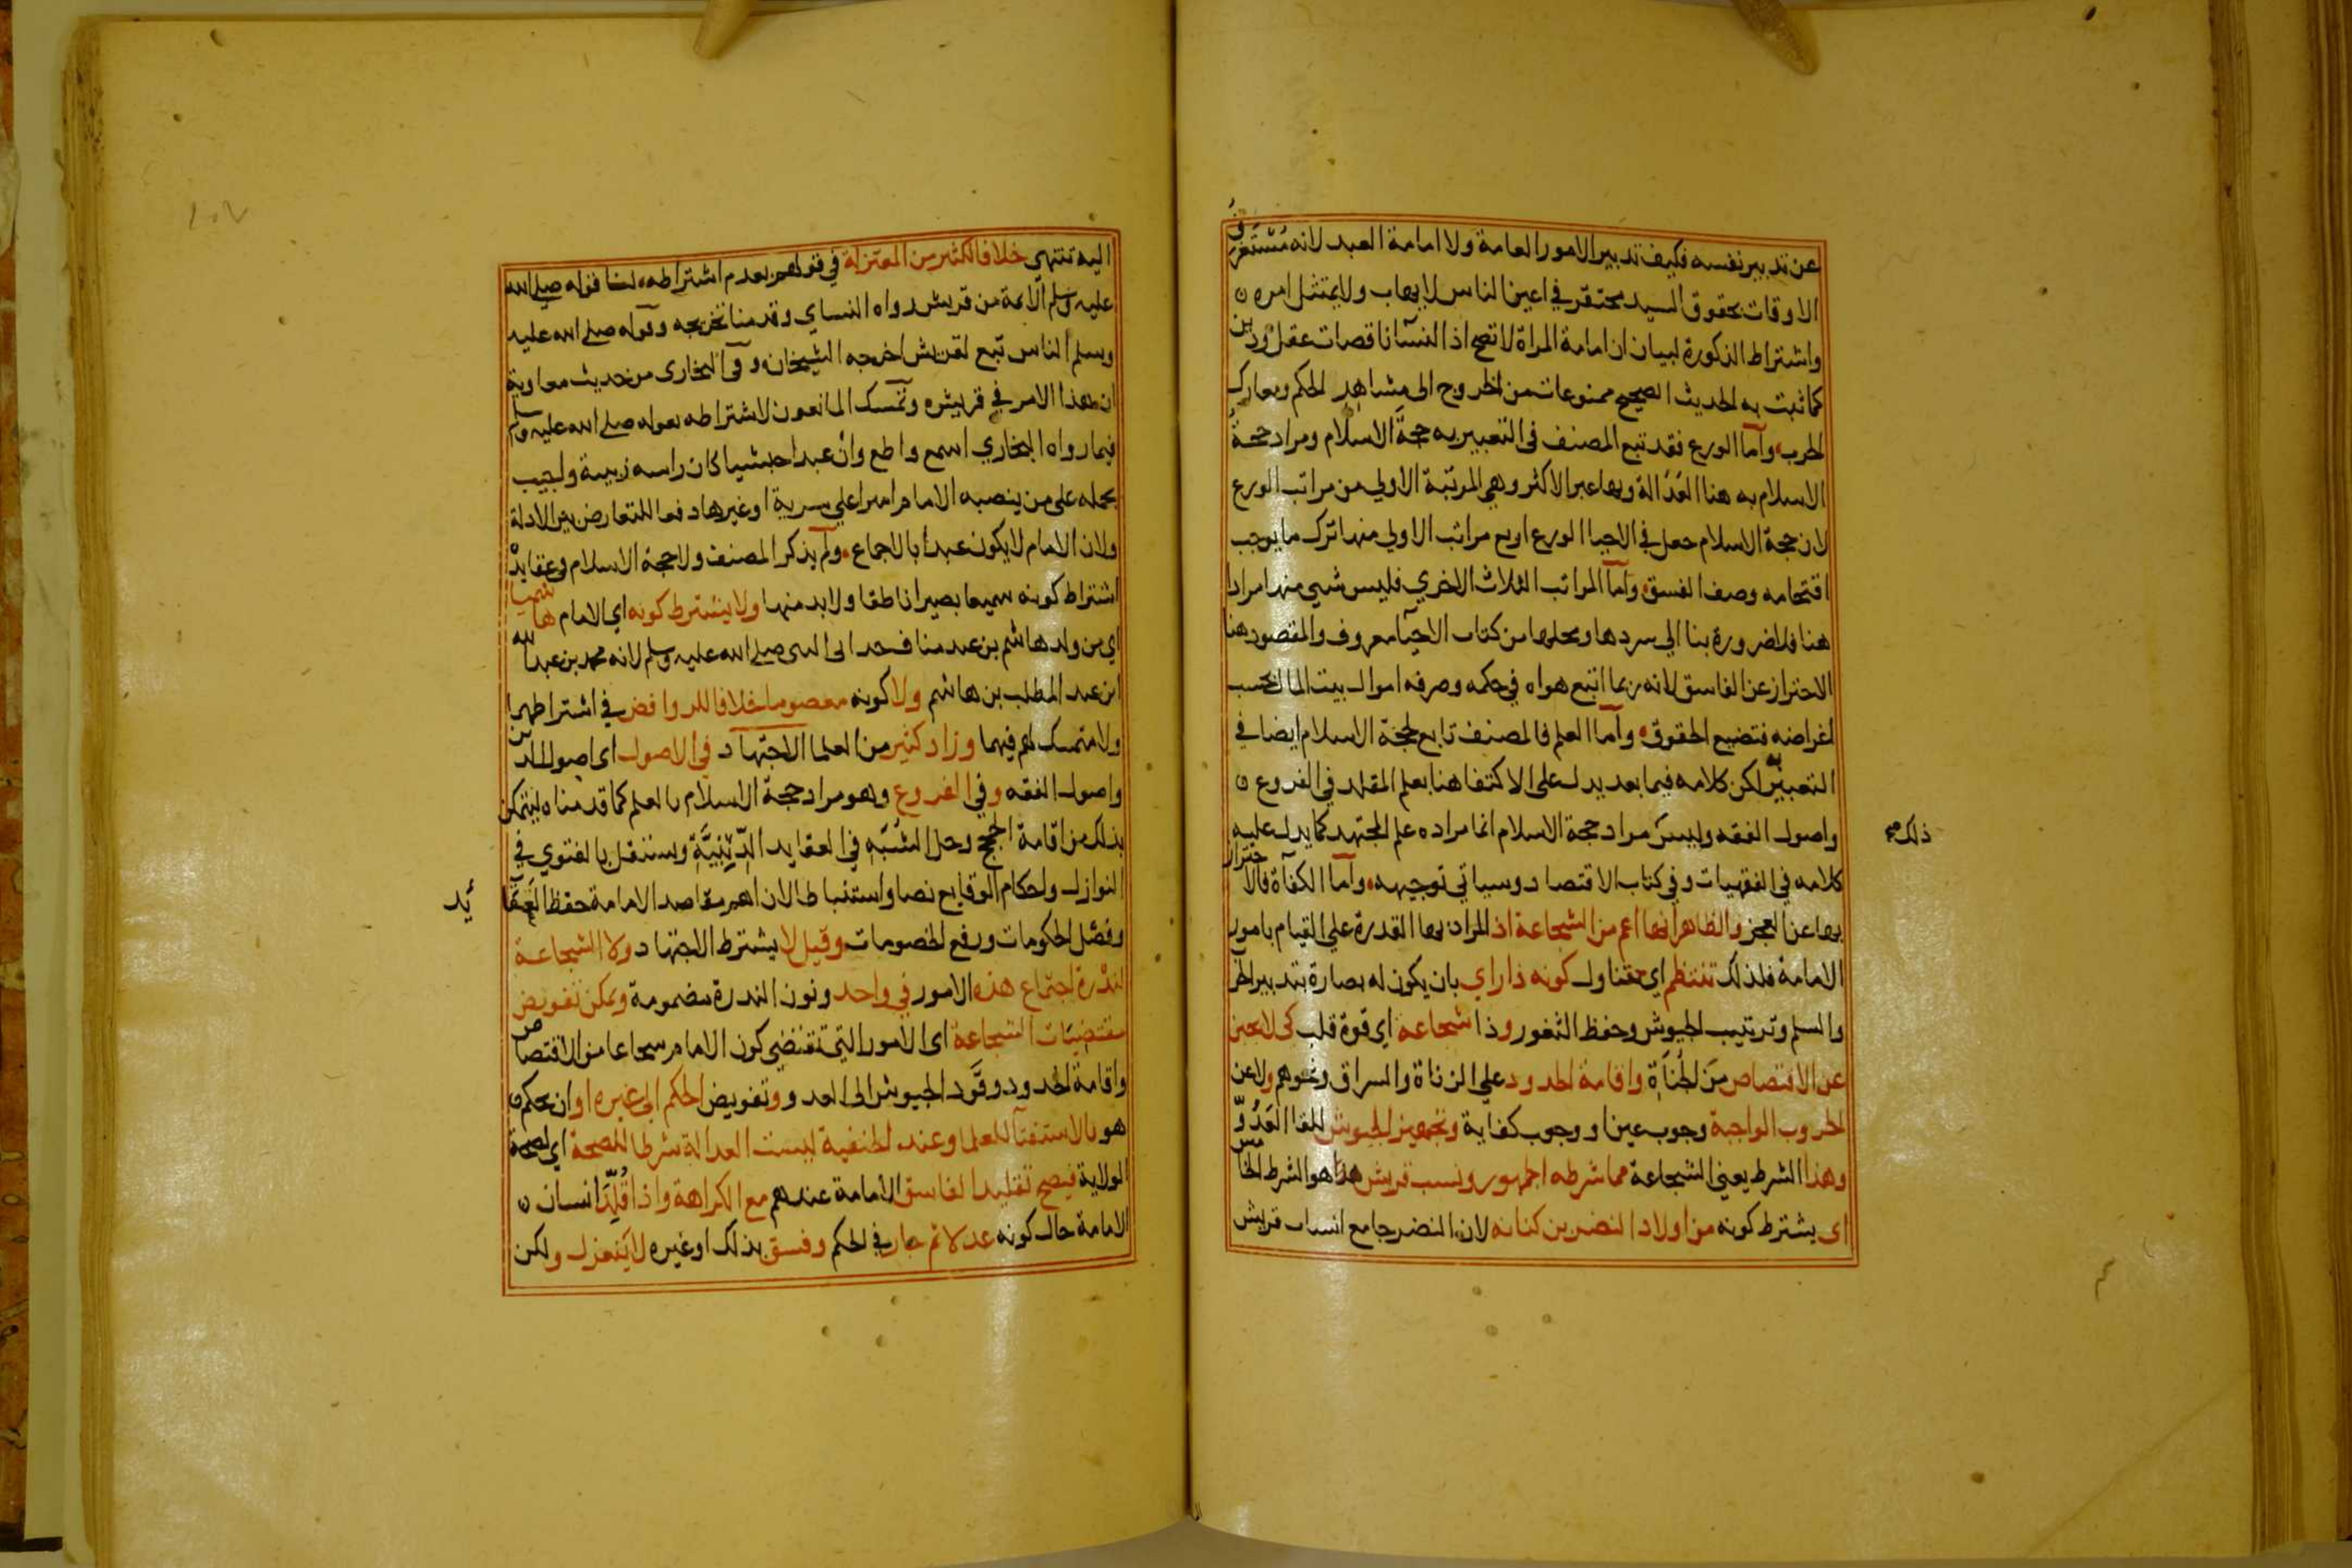 عن تدبير نفسه فكيف تدبير الامور العامة ولا امامة العبد لانه مُسْتَغْرَقُ
الاوقات بحقوق السيد محتقر في اعين الناس لا يهاب ولا يمتثل امره
واشتراط الذكورة لبيان ان امامة المراة لا تصح اذ النسآ ناقصات عقل ودين
كما ثبت به الحديث الصحيح ممنوعات من الخروج الى مشاهد الحكم ومعارك
الحرب وآما الورع فقد تبع المصنف في التعبير به حجة الاسلام ومراد حجة
الاسلام به هنا العَدَالة وبها عبر الاكثر وهي المرتبة الاولي من مراتب الورع
لان حجة الاسلام جعل في الاحيا الورع اربع مراتب الاولي منها ترك ما يوجب
اقتحامه وصف الفسق وآما المراتب الثلاث الاخري فليس شيي منها مرادا
هنا فلا ضرورة بنا الي سردها ومحلها من كتاب الاحيآ معروف والمقصود هنا
الاحتراز عن الفاسق لانه ربما اتبع هواه في حكمه وصرفه اموال بيت المال بحسب
اغراضه فتضيع الحقوق وآما العلم فالمصنف تابع لحجة الاسلام ايضا في
التعبير به لكن كلامه فيما بعد يدل على الاكتفا هنا بعلم المقلد في الفروع
واصول الفقه وليس مراد حجة الاسلام انما مراده علم المجتهد كما يدل عليه
ذلك صح
كلامه في الفقهيات وفي كتاب الاقتصاد وسياتي توجيهه وآما الكفآة فالاحتراز
بها عن العجز والظاهر انها اعم من الشجاعة اذ المراد بها القدرة علي القيام بامور
الامامة فلذلك تنتظم اي تتناول كونه ذا راي بان يكون له بصارة بتدبير الحرب
والسلم وترتيب الجيوش وحفظ الثغور وذا شجاعة اي قوة قلب كي لا يجبن
عن الاقتصاص مِنَ الجُنَاةِ واقامة الحدود علي الزناة والسراق ونحوهم ولا عن
الحروب الواجبة وجوب عين او وجوب كفاية وتجهيز الجيوش للقا العَدُوِّ
وهذا الشرط يعني الشجاعة مما شرطه الجمهور ونسب قريش هذا هو الشرط الخامس
اى يشترط كونه من اولاد النضر بن كنانه لان النضر جامع انساب قريش
اليه تنتهي خلافا لكثير من المعتزلة في قولهم بعدم اشتراطه لنا قوله صلي الله
عليه وسلم الآئمة من قريش رواه النساي وقدمنا تخريجه وقوله صلى الله عليه
وسلم الناس تبع لقريش اخرجه الشيخان وفى البخارى من حديث معاوية
ان هذا الامر في قريش وتمسك المانعون لاشتراطه بقوله صلي الله عليه وسلم
فيما رواه البخاري اسمع واطع وان عبدا حبشيا كان راسه زبيبة واجيب
بحمله على من ينصبه الامام اميرا علي سرية او غيرها دفعا للتعارض بين الادلة
ولان الامام لا يكون عبدا بالاجماع ولم يذكر المصنف ولا حجة الاسلام في عقايده
اشتراط كونه سميعا بصيرا ناطقا ولا بد منها ولا يشترط كونه اي الامام هاشميا
اي من ولد هاشم بن عبد مناف جد ابى النبي صلى الله عليه وسلم لانه محمد بن عبد الله
ابن عبد المطلب بن هاشم ولا كونه معصوما خلافا للروافض في اشتراطهما
ولا متمسك لهم فيهما وزاد كثير من العلما الاجتهاد في الاصول اى اصول الدين
واصول الفقه وفي الفروع وهو مراد حجة الاسلام بالعلم كما قدمناه ليتمكن
بذلك من اقامة الحجج وحل الشُبَه في العقايد الدِّيْنِيَّةِ ويستقل بالفتوي في
النوازل واحكام الوقايع نصا واستنباطا لان اهم مقاصد الامامة حفظ العَقَايد
وفصل الحكومات ورفع الخصومات وقيل لا يشترط الاجتهاد ولا الشجاعة
لنُدْرة اجتماع هذه الامور في واحد ونون الندرة مضمومة ويمكن تفويض
مقتضيَات الشجاعة اى الامور التي تقتضي كون الامام شجاعا من الاقتصاص
واقامة الحدود وقَود الجيوش الى العدو وتفويض الحكم الى غيره او ان يحكم
هو بالاستفتآ للعلما وعند الحنفية ليست العدالة شرطا للصحة اي لصحة
الولاية فيصح تقليد الفاسق الامامة عندهم مع الكراهة واذا قُلِّدَ انسان
الامامة حال كونه عدلا ثم جار في الحكم وفسق بذلك او غيره لا يَنعزل ولكن